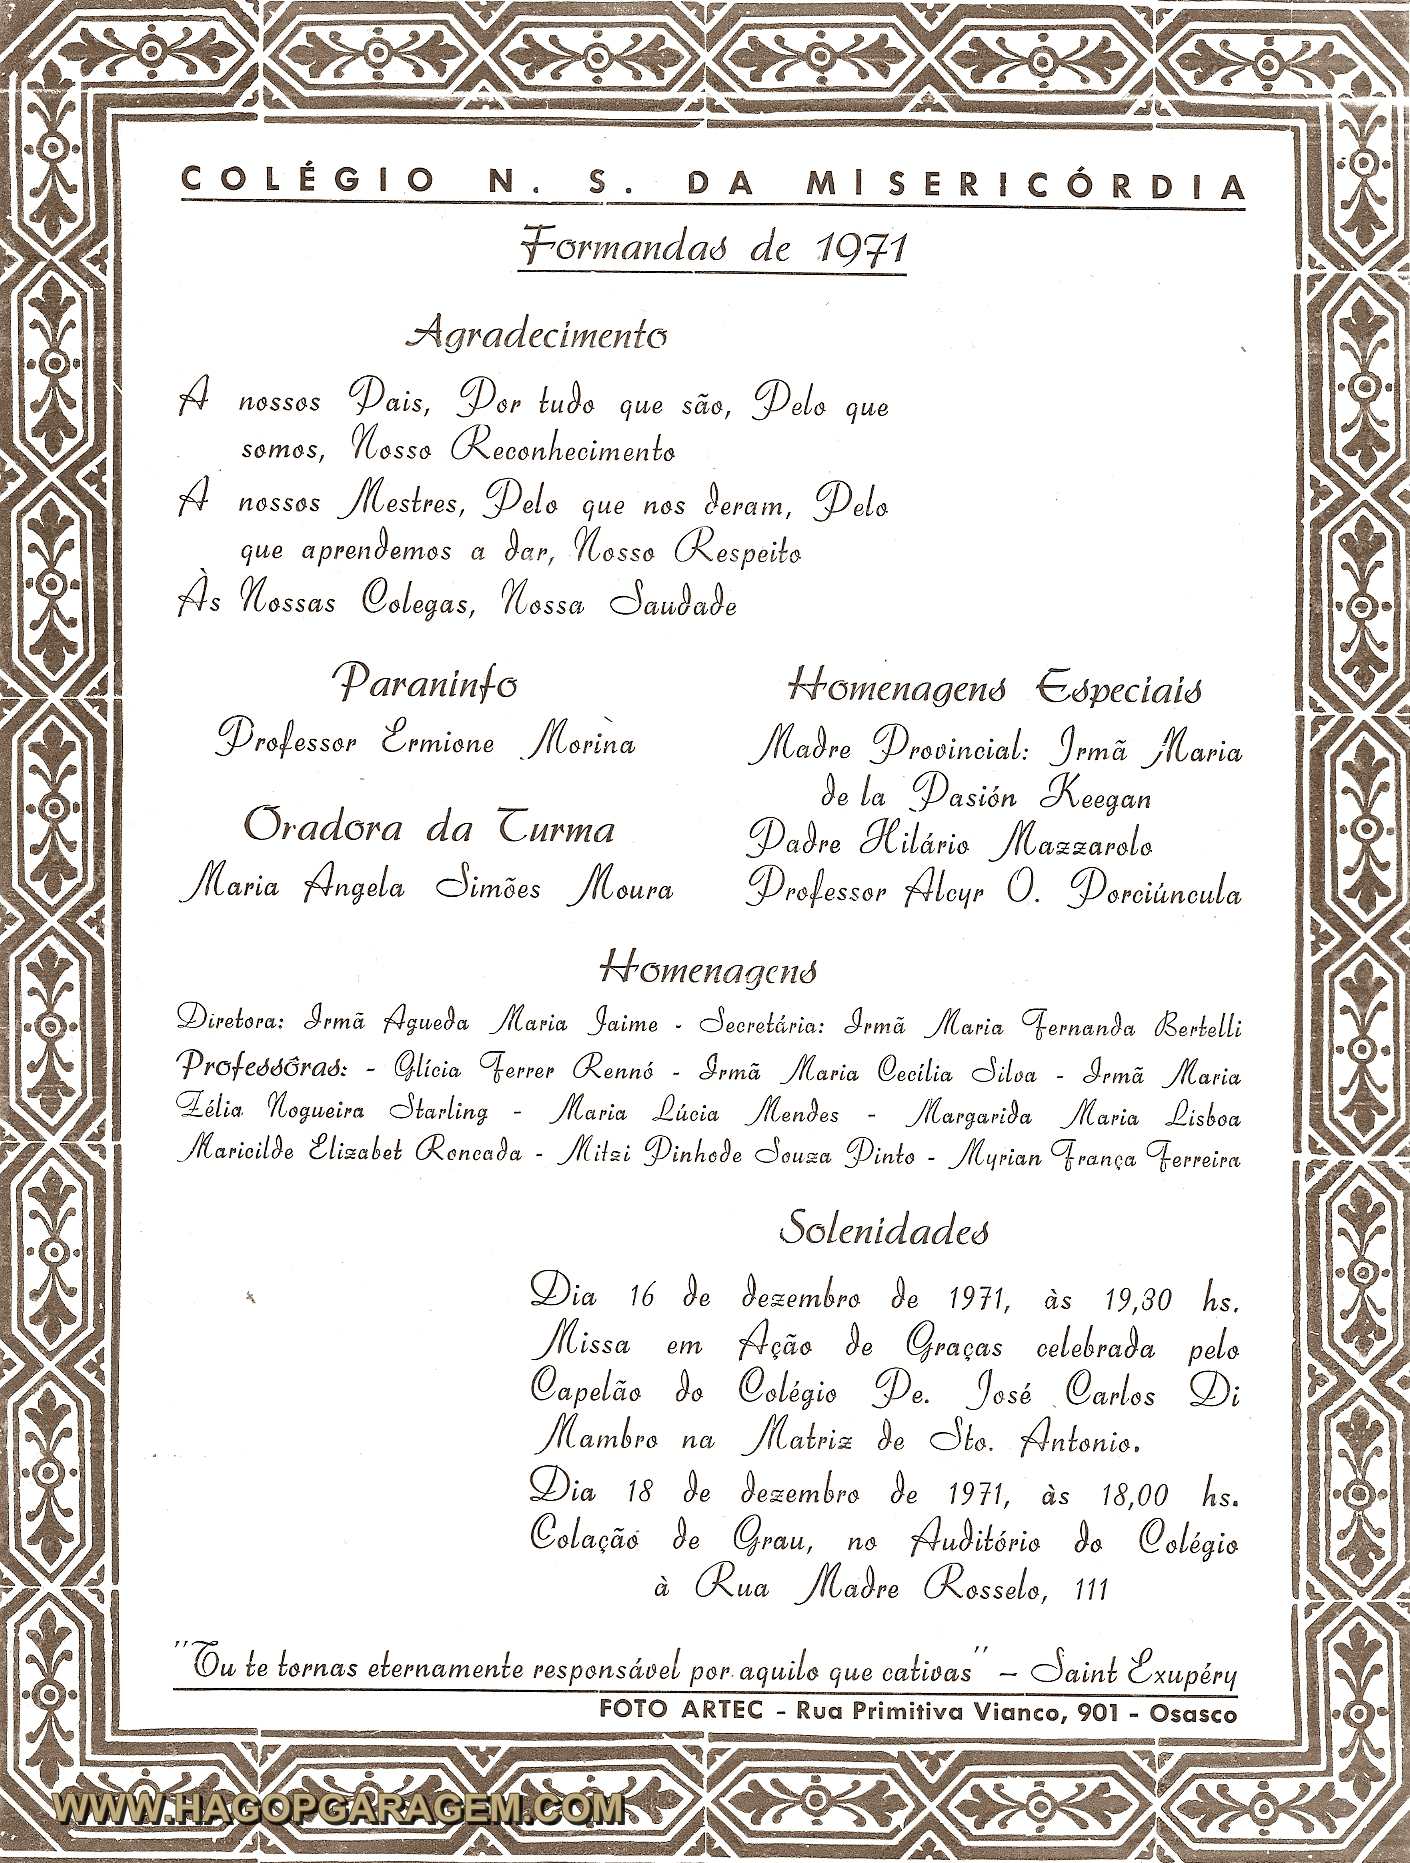 COLÉGIO N. S. DA MISERICÓRDIA
Formandas de 1971
Agradecimento
A nossos Pais, Por tudo que são, Pelo que
somos, Nosso Reconhecimento
A nossos Mestres, Pelo que nos deram, Pelo
que aprendemos a dar, Nosso Respeito
Às Nossas Colegas, Nossa Saudade
Paraninfo
Professor Ermione Morina
Oradora da Turma
Maria Angela Simões Moura
Homenagens Especiais
Madre Provincial: Irmã Maria
de la Pasión Keegan
Padre Hilário Mazzarolo
Professor Alcyr O. Porciúncula
Homenagens
Diretora: Irmã Agueda Maria Jaime - Secretária: Irmã Maria Fernanda Bertelli
Professôras: - Glícia Ferrer Rennó - Irmã Maria Cecília Silva - Irmã Maria
Zélia Nogueira Starling - Maria Lúcia Mendes - Margarida Maria Lisboa
Maricilde Elizabet Roncada - Mitzi Pinhode Souza Pinto - Myrian França Ferreira
Solenidades
Dia 16 de dezembro de 1971, às 19,30 hs.
Missa em Ação de Graças celebrada pelo
Capelão do Colégio Pe. José Carlos Di
Mambro na Matriz de Sto. Antonio.
Dia 18 de dezembro de 1971, às 18,00 hs.
Colação de Grau, no Auditório do Colégio
à Rua Madre Rosselo, 111
"Tu te tornas eternamente responsável por aquilo que cativas" - Saint Exupéry
FOTO ARTEC - Rua Primitiva Vianco, 901 - Osasco
WWW.HAGOPGARAGEM.COM